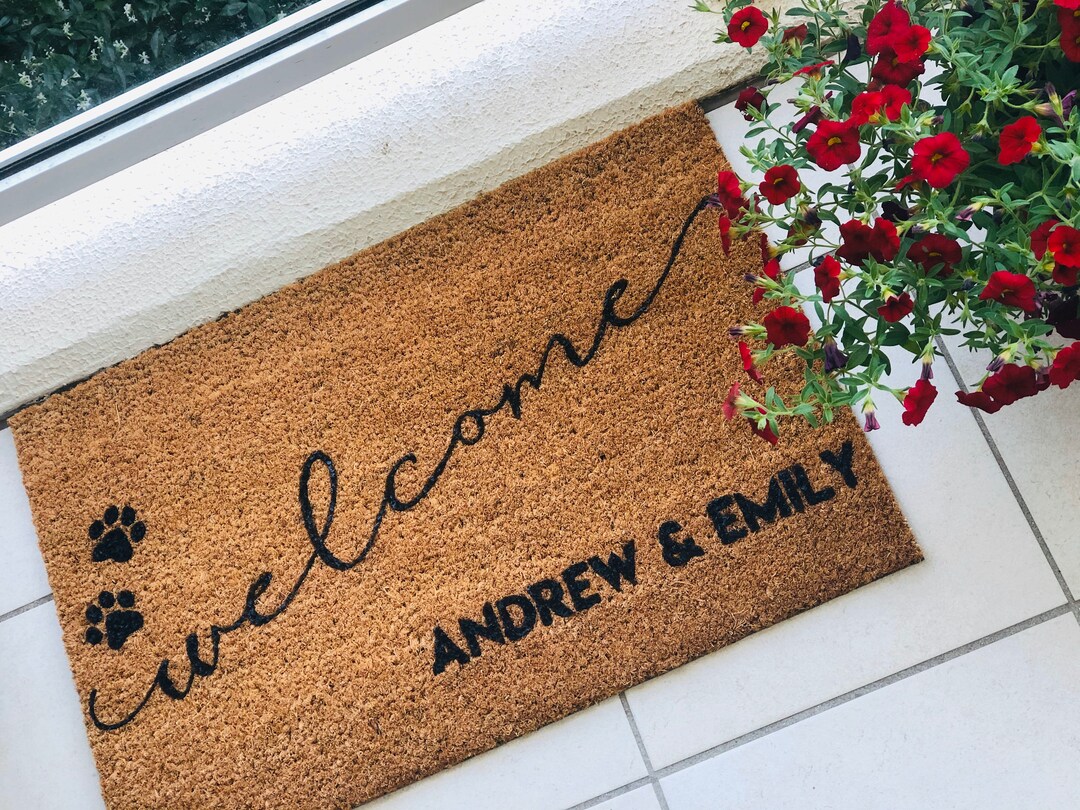 welcome
ANDREW & EMILY